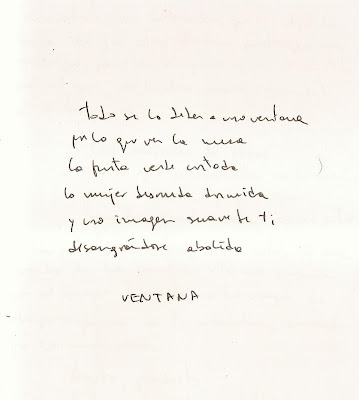 todo se lo debes a una ventana
por lo que ves la mesa
la fruta verde cortada
la mujer desnuda dormida
y una imagen suave de ti
desangrándose abolida
VENTANA